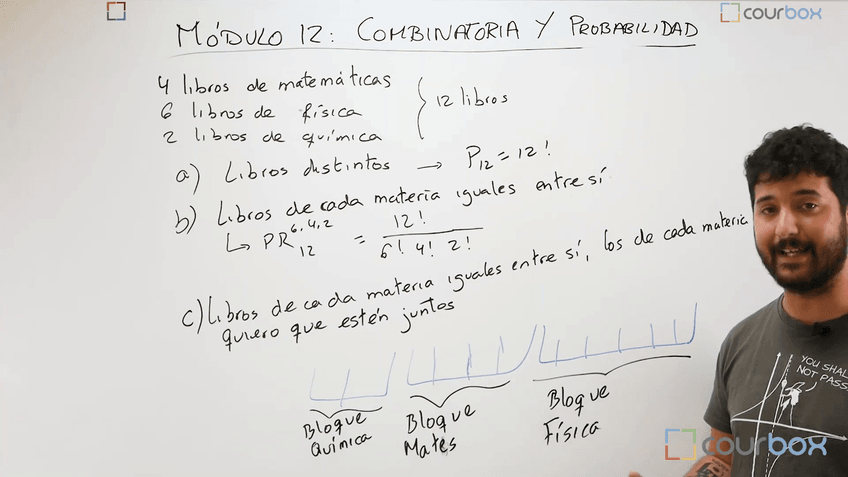 courbox
MÓDULO 12: COMBINATORIA Y PROBABILIDAD
4 libros de matemáticas
6 libros de física
2 libros de química
12 libros
a) Libros distintos → P₁₂ = 12!
b) Libros de cada materia iguales entre sí
↳ PR₁₂^6,4,2 = 12! / 6! 4! 2!
c) Libros de cada materia iguales entre sí, los de cada materia
quiero que estén juntos
Bloque
Química
Bloque
Mates
Bloque
Física
YOU SHALL
NOT PASS
courbox